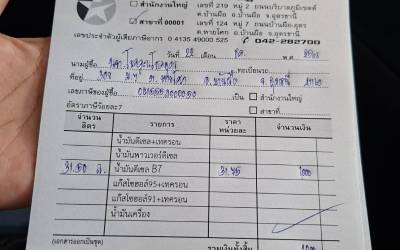 สำนักงานใหญ่ เลขที่ 219 หมู่ 2 ถนนบริบาลภูมิเขตต์
ต.บ้านผือ อ.บ้านผือ จ.อุดรธานี
สาขาที่ 00001 เลขที่ 124 หมู่ 7 ถนนบ้านผือ-
ต.หายโศก อ.บ้านผือ จ.อุดรธานี
เลขประจำตัวผู้เสียภาษีอากร 0 4135 49000 525 042-282700
วันที่ 22 เดือน พ.ศ.
นามผู้ซื้อ ทะเบียนรถ
ที่อยู่
เลขภาษีของผู้ซื้อ เป็น สำนักงานใหญ่
อัตราภาษีร้อยละ7 สาขาที่
จำนวน ลิตร รายการ ราคา หน่วยละ จำนวนเงิน
น้ำมันดีเซล+เทครอน
น้ำมันพาวเวอร์ดีเซล
31.50 ล. น้ำมันดีเซล B7 31.75 1000
แก๊สโซฮอล์95+เทครอน
แก๊สโซฮอล์91+เทครอน
น้ำมันเครื่อง
(เอกสารออกเป็นชุด) รวมเงินทั้งสิ้น